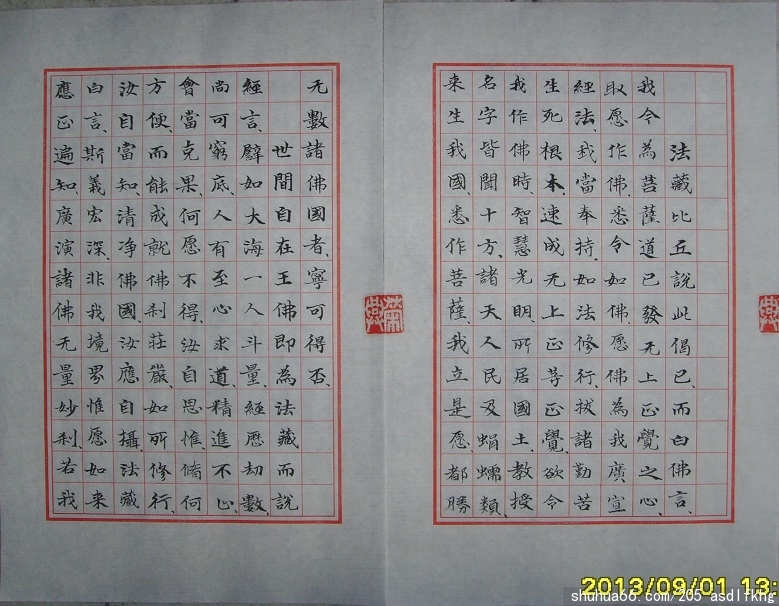 法藏比丘說此偈已、而白佛言、
我今為菩薩道已發无上正覺之心、
取愿作佛、悉令如佛、愿佛為我廣宣
經法、我當奉持、如法修行、拔諸勤苦
生死根本、速成无上正等正覺、欲令
我作佛時智慧光明、所居國土、教授
名字皆聞十方、諸天人民及蜎蠕類、
来生我國、悉作菩薩、我立是愿、都勝
无數諸佛國者、寧可得否、
世間自在王佛即為法藏而說
經言、譬如大海一人斗量、經歷劫數、
尚可窮底、人有至心求道、精進不止、
會當克果、何愿不得、汝自思惟、脩何
方便、而能成就佛刹莊嚴、如所修行、
汝自當知、清净佛國、汝應自攝、法藏
白言、斯義宏深、非我境界惟愿如来
應正遍知、廣演諸佛无量妙刹、若我
2013/09/01 13:
shuhua66.com/205 asdlfkhg